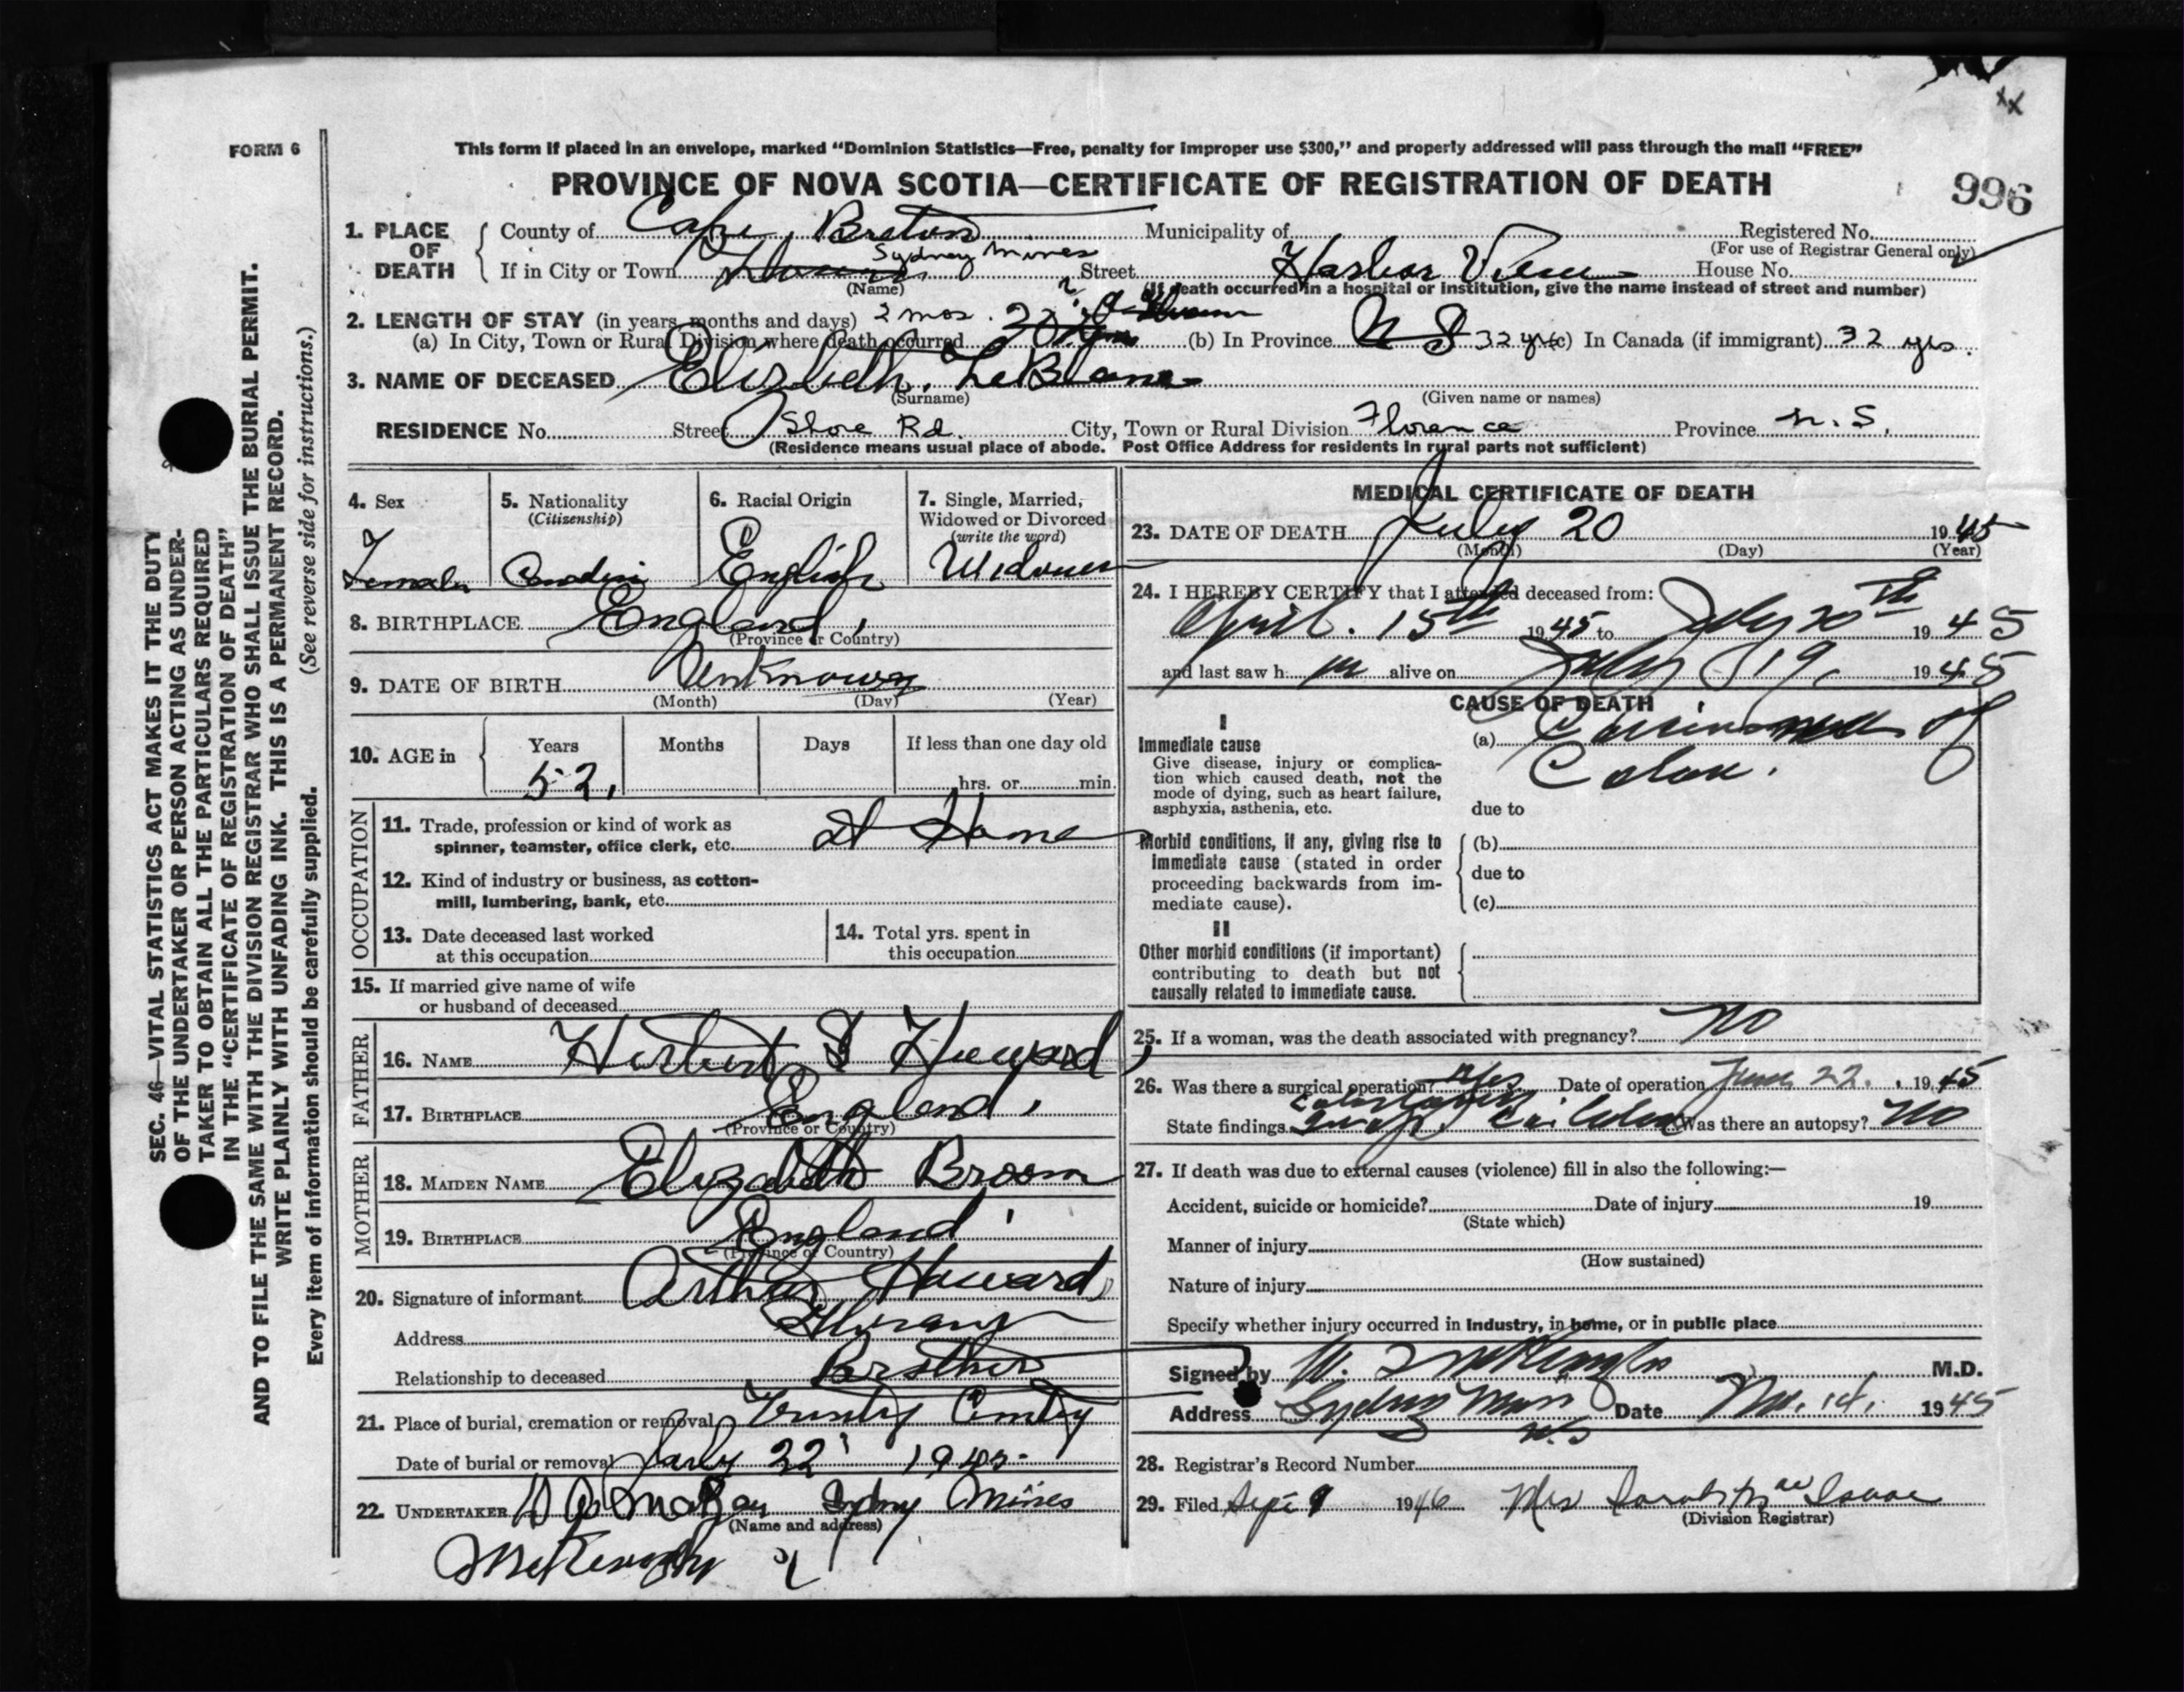 FORM 6
This form if placed in an envelope, marked "Dominion Statistics—Free, penalty for improper use $300," and properly addressed will pass through the mail "FREE"
PROVINCE OF NOVA SCOTIA—CERTIFICATE OF REGISTRATION OF DEATH
996
1. PLACE OF DEATH County of Cape Breton Municipality of Registered No.
(For use of Registrar General only)
If in City or Town Sydney Mines Street Harbor View House No.
(Name) (If death occurred in a hospital or institution, give the name instead of street and number)
2. LENGTH OF STAY (in years, months and days) 2 mos.
(a) In City, Town or Rural Division where death occurred (b) In Province N S 32 yrs (c) In Canada (if immigrant) 32 yrs.
3. NAME OF DECEASED Elizbeth. LeBlanc
(Surname) (Given name or names)
RESIDENCE No. Street Shore Rd. City, Town or Rural Division Florence Province N.S.
(Residence means usual place of abode. Post Office Address for residents in rural parts not sufficient)
SEC. 46—VITAL STATISTICS ACT MAKES IT THE DUTY
OF THE UNDERTAKER OR PERSON ACTING AS UNDER-
TAKER TO OBTAIN ALL THE PARTICULARS REQUIRED
IN THE "CERTIFICATE OF REGISTRATION OF DEATH"
AND TO FILE THE SAME WITH THE DIVISION REGISTRAR WHO SHALL ISSUE THE BURIAL PERMIT.
WRITE PLAINLY WITH UNFADING INK. THIS IS A PERMANENT RECORD.
Every item of information should be carefully supplied. (See reverse side for instructions.)
4. Sex
Female
5. Nationality
(Citizenship)
6. Racial Origin
English
7. Single, Married,
Widowed or Divorced
(write the word)
Widower
8. BIRTHPLACE England
(Province or Country)
9. DATE OF BIRTH Unknown
(Month) (Day) (Year)
10. AGE in Years Months Days If less than one day old
52 hrs. or min.
OCCUPATION
11. Trade, profession or kind of work as
spinner, teamster, office clerk, etc. at Home
12. Kind of industry or business, as cotton-
mill, lumbering, bank, etc.
13. Date deceased last worked
at this occupation
14. Total yrs. spent in
this occupation
15. If married give name of wife
or husband of deceased
FATHER
16. NAME Herbert Howard
17. BIRTHPLACE England
(Province or Country)
MOTHER
18. MAIDEN NAME Elizabeth Broom
19. BIRTHPLACE England
(Province or Country)
20. Signature of informant Arthur Howard
Address
Relationship to deceased Brother
21. Place of burial, cremation or removal Trinity
Date of burial or removal July 22 1945
22. UNDERTAKER Sydney Mines
(Name and address)
MEDICAL CERTIFICATE OF DEATH
23. DATE OF DEATH July 20 1945
(Month) (Day) (Year)
24. I HEREBY CERTIFY that I attended deceased from:
April. 15th 1945 to July 20th 1945
and last saw h alive on July 19, 1945
CAUSE OF DEATH
I
Immediate cause
Give disease, injury or complica-
tion which caused death, not the
mode of dying, such as heart failure,
asphyxia, asthenia, etc.
(a) Carcinoma of
Colon.
due to
Morbid conditions, if any, giving rise to
immediate cause (stated in order
proceeding backwards from im-
mediate cause).
(b)
due to
(c)
II
Other morbid conditions (if important)
contributing to death but not
causally related to immediate cause.
25. If a woman, was the death associated with pregnancy? No
26. Was there a surgical operation? Yes Date of operation June 22. 1945
State findings Was there an autopsy? No
27. If death was due to external causes (violence) fill in also the following:—
Accident, suicide or homicide? Date of injury 19
(State which)
Manner of injury
(How sustained)
Nature of injury
Specify whether injury occurred in industry, in home, or in public place
Signed by M.D.
Address Sydney Mines Date Nov. 14, 1945
N.S
28. Registrar's Record Number
29. Filed Sept 9 1946 Mrs
(Division Registrar)